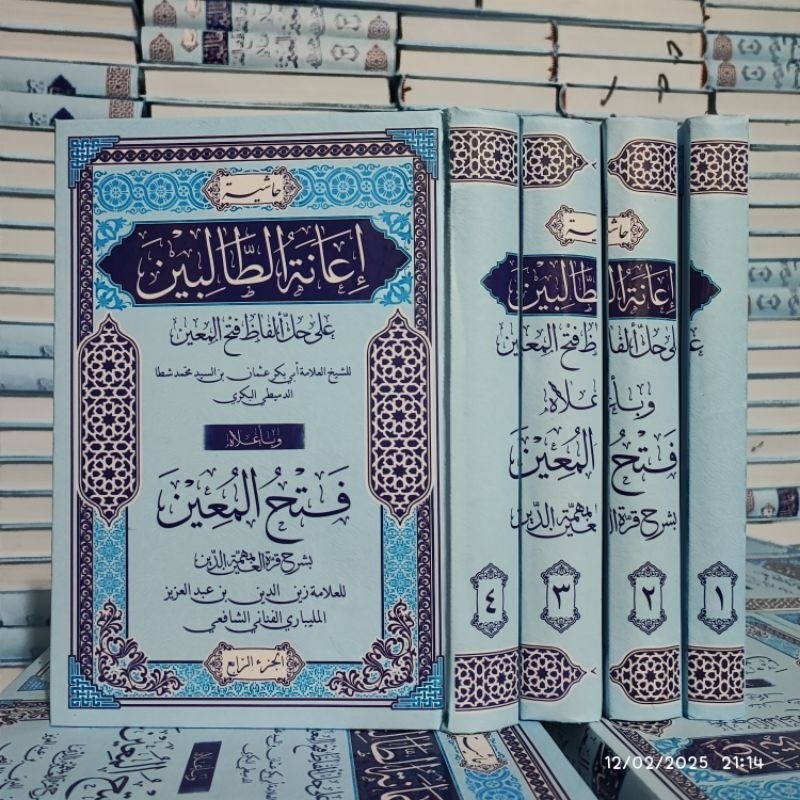 حاشية
إعانة الطالبين
على حل ألفاظ فتح المعين
للشيخ العلامة أبي بكر عثمان بن السيد محمد شطا
الدميطي البكري
وبأعلاه
فتح المعين
بشرح قرة العين بمهمة الدين
للعلامة زين الدين بن عبد العزيز
المليباري الفناني الشافعي
الجزء الرابع
حاشية
إعانة الطالبين
على حل ألفاظ فتح المعين
وبأعلاه
فتح المعين
بشرح قرة العين بمهمة الدين
٤
٣
٢
١
12/02/2025 21:14